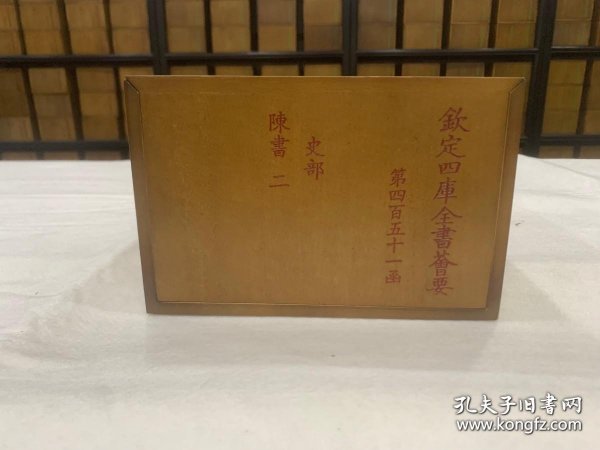 欽定四庫全書薈要
第四百五十一函
史部
陳書 二
孔夫子旧書网
www.kongfz.com